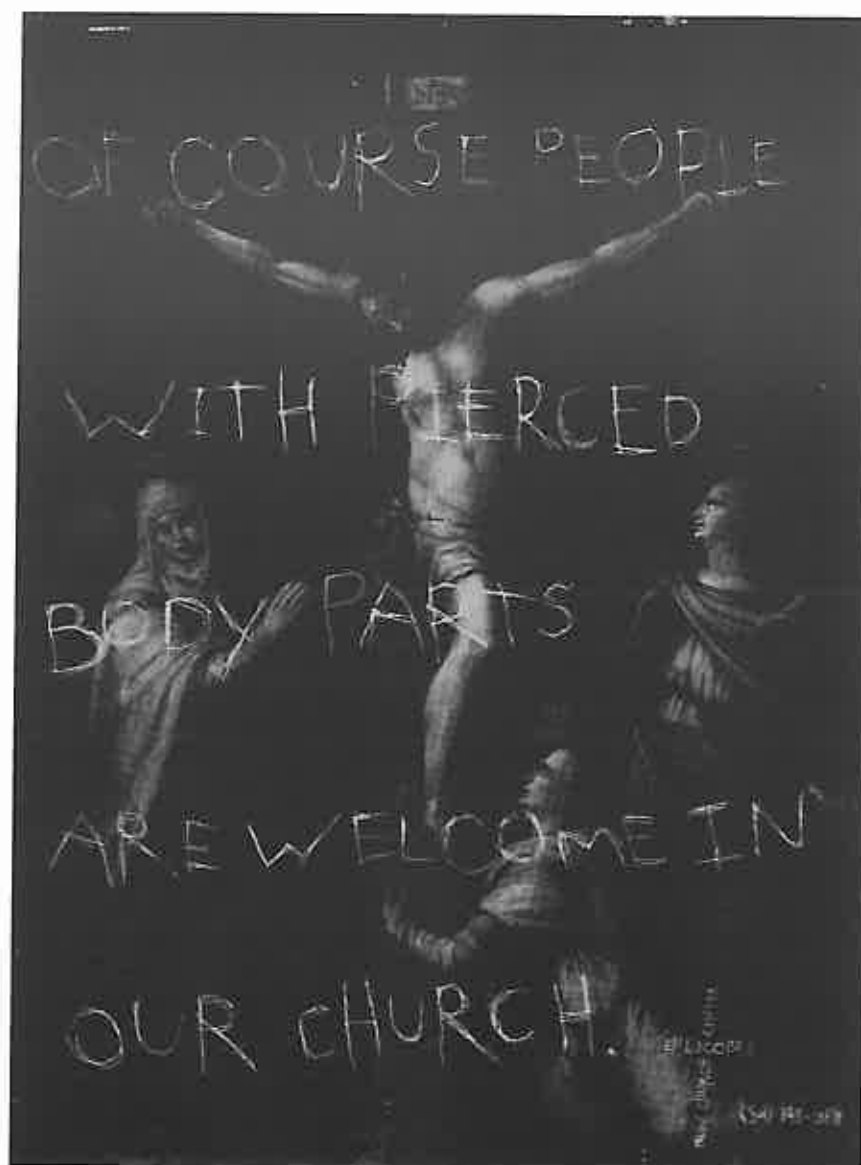 OF COURSE PEOPLE
WITH PIERCED
BODY PARTS
ARE WELCOME IN
OUR CHURCH.